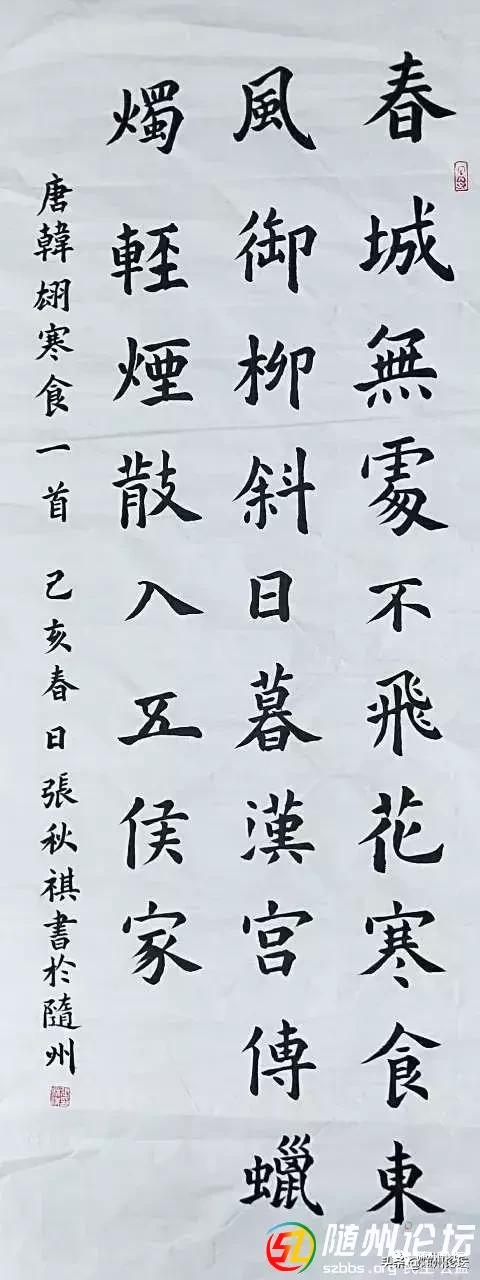 春城無處不飛花寒食東
風御柳斜日暮漢宮傳蠟
燭輕煙散入五侯家
唐韓翃寒食一首 己亥春日張秋祺書於隨州
随州论坛
szbbs.org
头条